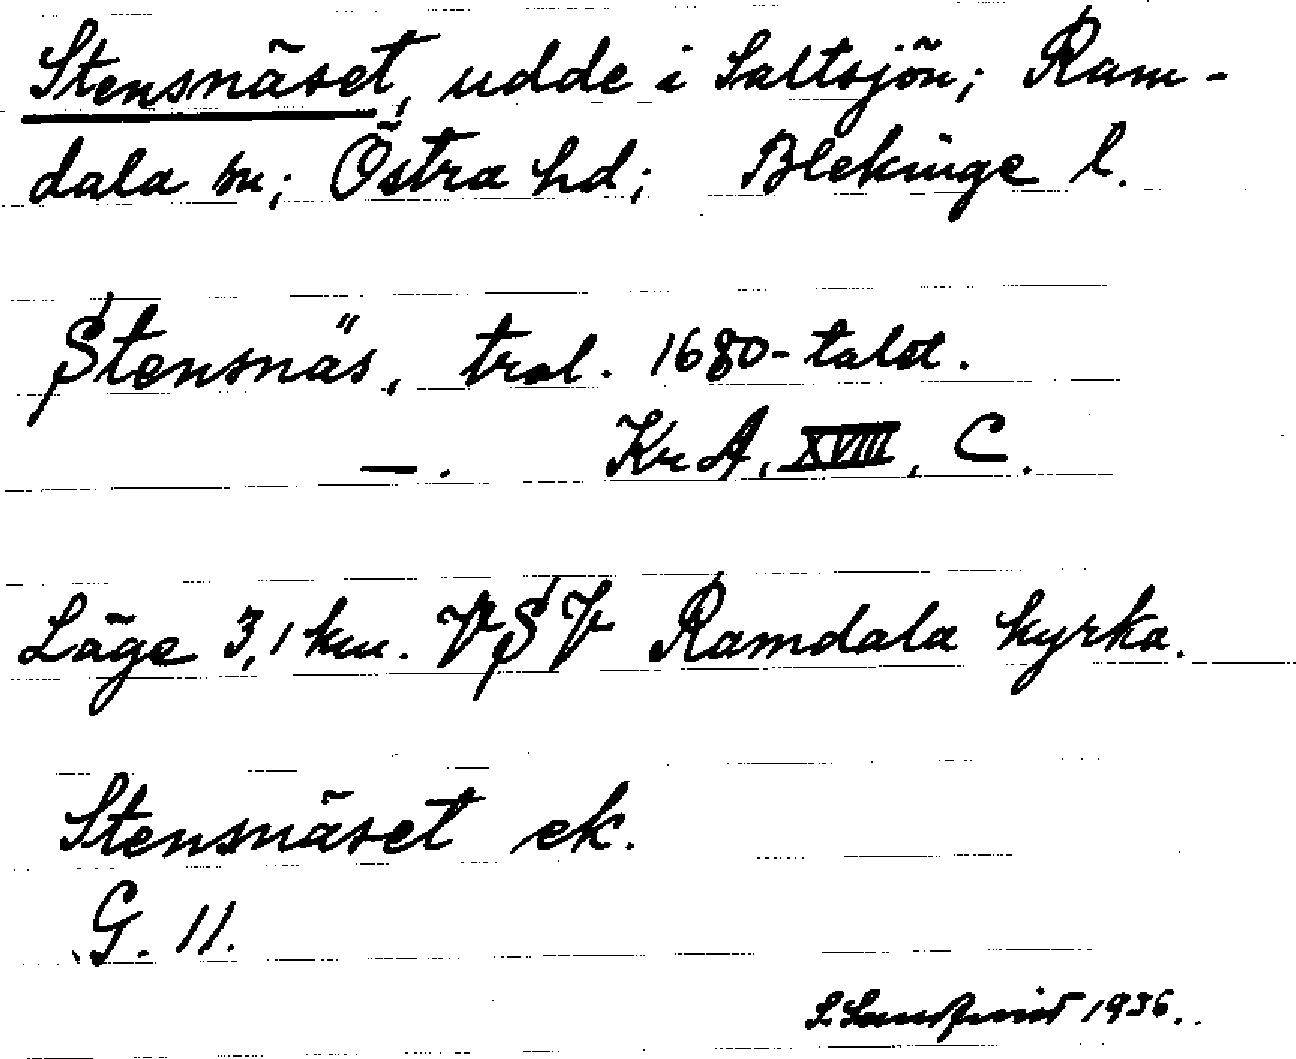 Stensnäset, udde i Saltsjön; Ram-
dala sn; Östra hd; Blekinge l.
Stensnäs, trol. 1680-talet.
—. KrA, XVIII, C.
Läge 3,1 km. VSV Ramdala kyrka.
Stensnäset ek.
G. 11.
S. 1936.